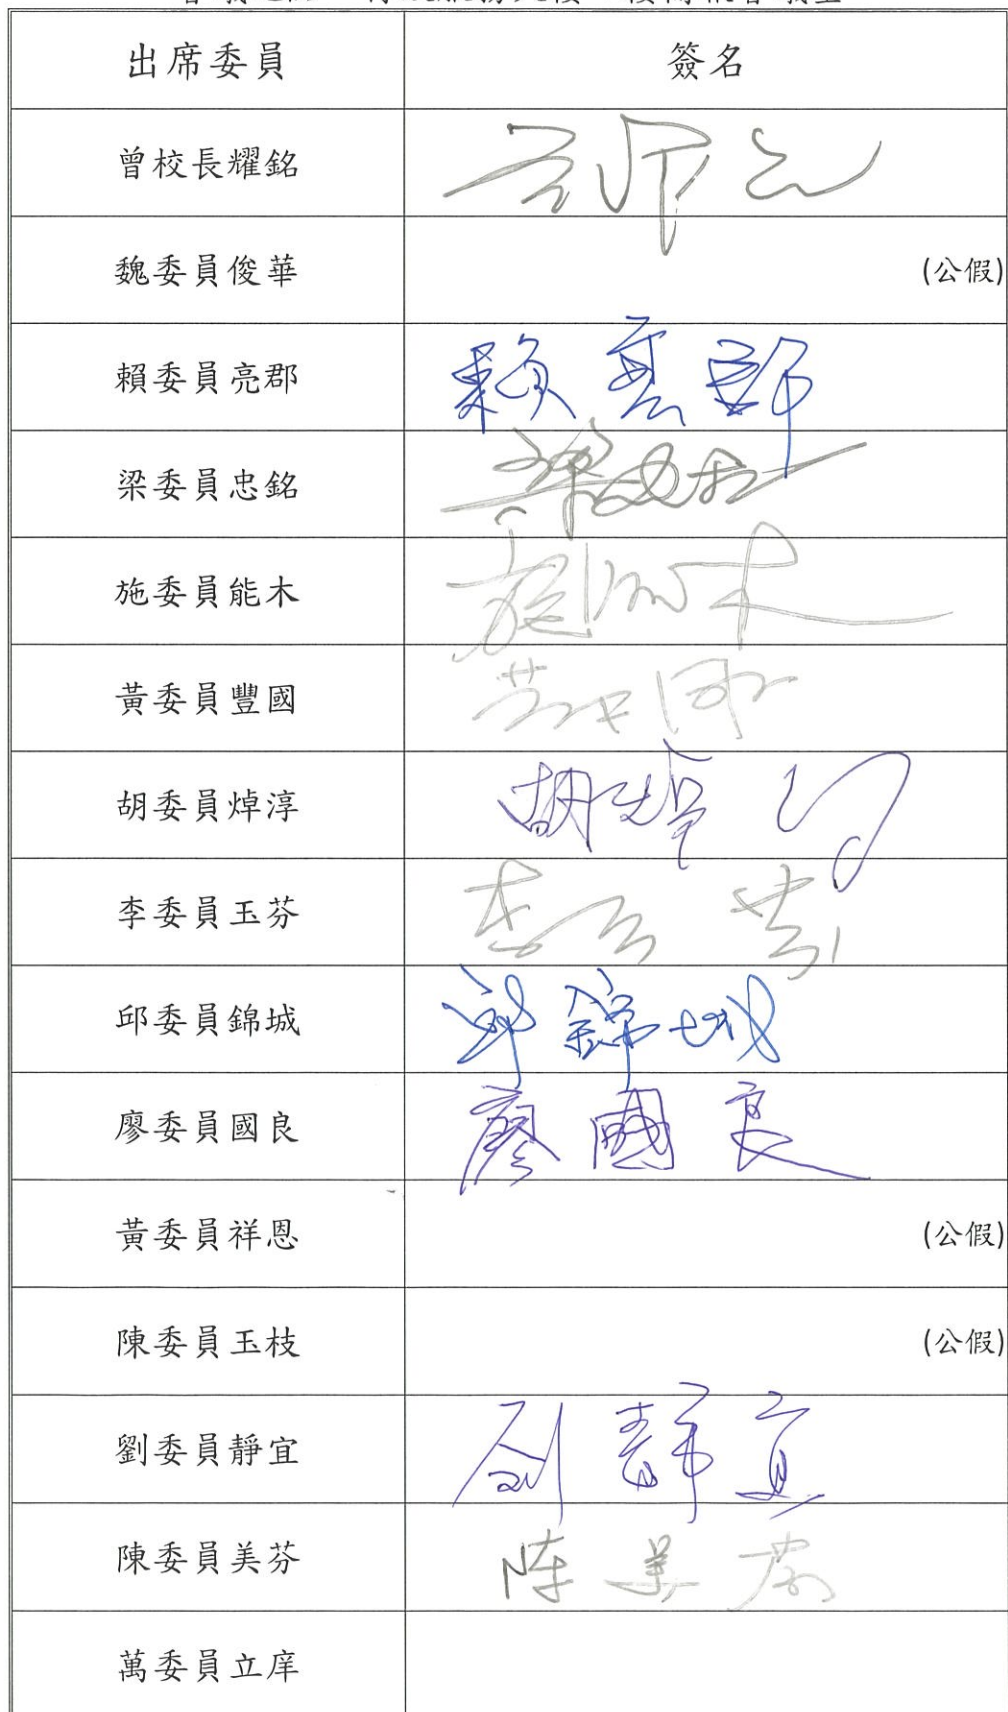 出席委員 簽名
曾校長耀銘
魏委員俊華 (公假)
賴委員亮郡 賴亮郡
梁委員忠銘 梁忠銘
施委員能木 施能木
黃委員豐國
胡委員焯淳 胡焯淳
李委員玉芬 李玉芬
邱委員錦城 邱錦城
廖委員國良 廖國良
黃委員祥恩 (公假)
陳委員玉枝 (公假)
劉委員靜宜 劉靜宜
陳委員美芬 陳美芬
萬委員立庠